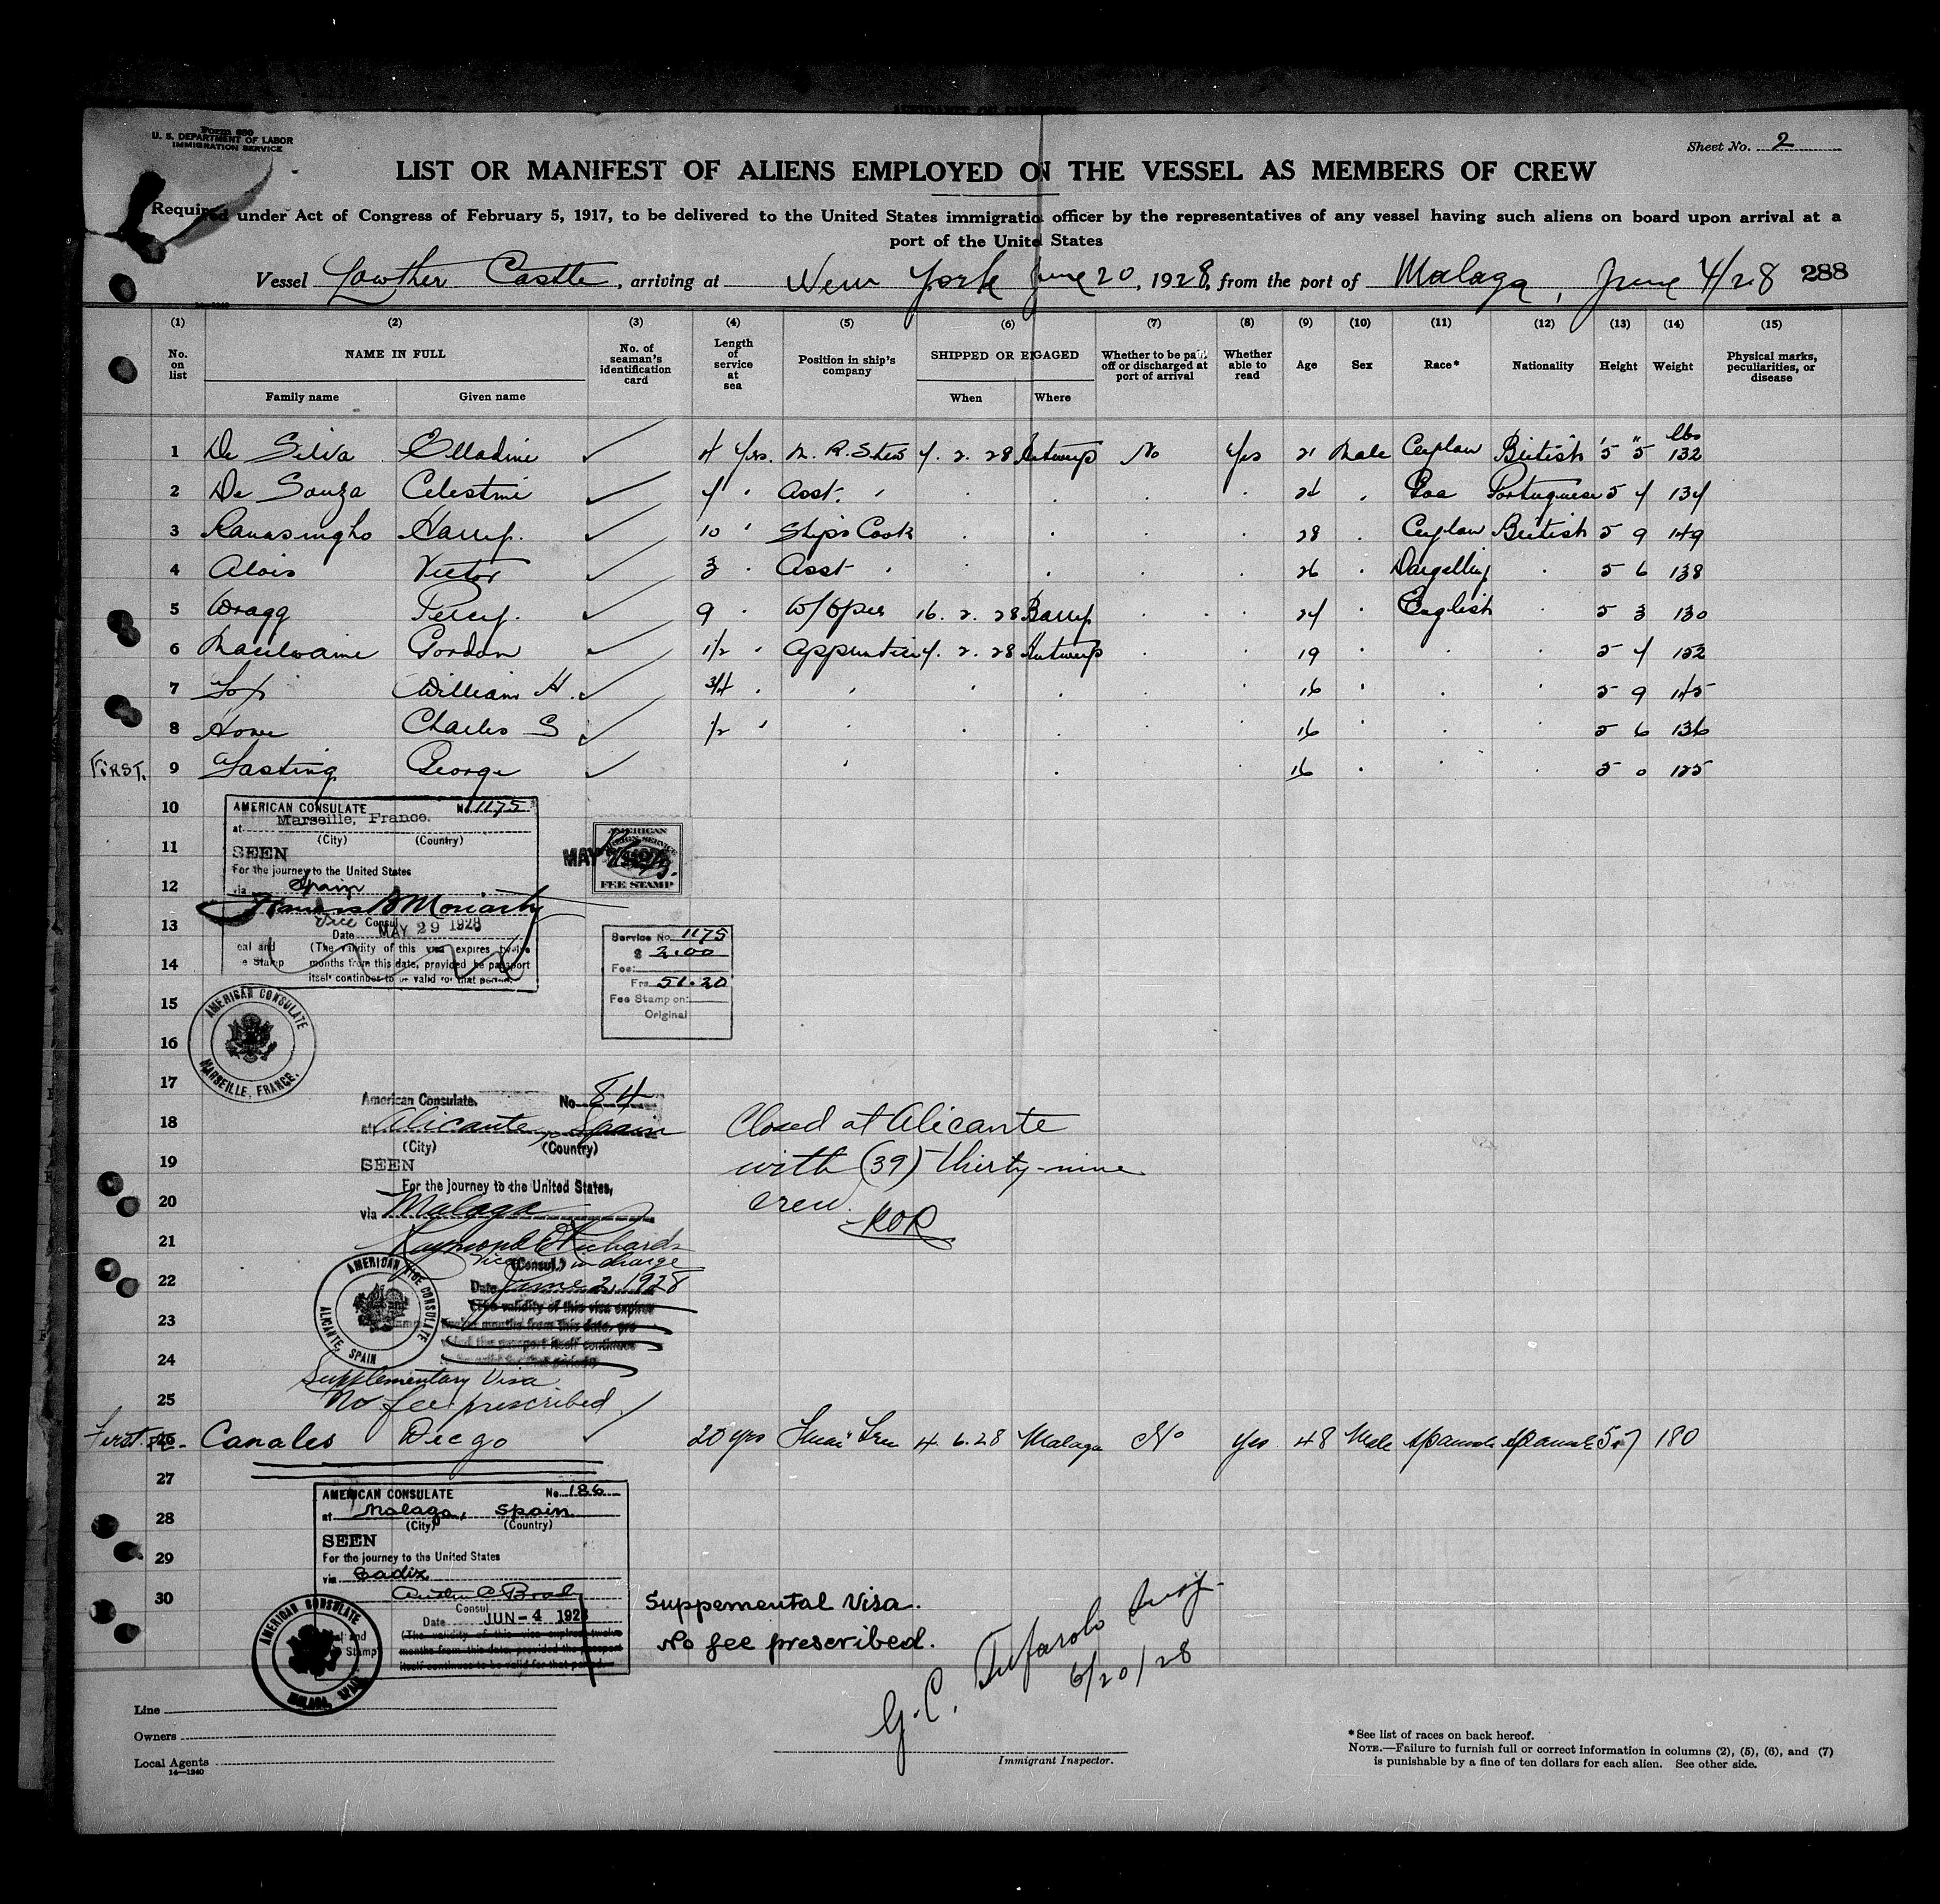 Form 680
U. S. DEPARTMENT OF LABOR
IMMIGRATION SERVICE
Sheet No. 2
LIST OR MANIFEST OF ALIENS EMPLOYED ON THE VESSEL AS MEMBERS OF CREW
Required under Act of Congress of February 5, 1917, to be delivered to the United States immigration officer by the representatives of any vessel having such aliens on board upon arrival at a
port of the United States
Vessel Lowther Castle, arriving at New York June 20, 1928, from the port of Malaga, June 4/28 288
(1) (2) (3) (4) (5) (6) (7) (8) (9) (10) (11) (12) (13) (14) (15)
No. on list NAME IN FULL Family name Given name No. of seaman's identification card Length of service at sea Position in ship's company SHIPPED OR ENGAGED When Where Whether to be paid off or discharged at port of arrival Whether able to read Age Sex Race* Nationality Height Weight Physical marks, peculiarities, or disease
lbs
1 De Silva ✓ 4 Yrs. 4. 2. 28 Antwerp No Yes 21 Male Ceylon British 5' 5" 132
2 De Souza Celestine ✓ Asst. Goa Portuguese 5 4 134
3 Ranasingho Harry. ✓ 10 Ships Cook 28 Ceylon British 5 9 149
4 Alois Victor ✓ 3 Asst 26 5 6 138
5 Wragg Percy. ✓ 9 W/Oper 16. 2. 28 Barry 24 English 5 3 130
6 Gordon ✓ 1/2 Apprentice 4. 2. 28 Antwerp 19 5 4 152
7 William H. ✓ 3/4 16 5 9 145
8 Howe Charles S ✓ 1/2 16 5 6 136
FIRST. 9 George ✓ 16 5 0 125
10
AMERICAN CONSULATE No. 1175
at Marseille, France.
(City) (Country)
11
SEEN
For the journey to the United States
12
via Spain
Francis B Moriarty
Vice Consul
13
Date MAY 29 1928
(The validity of this visa expires twelve
14
months from this date, provided he passport
itself continues to be valid for that period.
AMERICAN
FOREIGN SERVICE
MAY
FEE STAMP
Service No. 1175
$ 2.00
Fee:
Frs 51.20
Fee Stamp on:
Original
15
16
AMERICAN CONSULATE
MARSEILLE, FRANCE.
17
American Consulate. No. 84
18
at Alicante, Spain
(City) (Country)
19
SEEN
For the journey to the United States,
20
via Malaga
21
Raymond O Richards
Vice (Consul.) in charge
22
Date June 2, 1928
(The validity of this visa expires
23
twelve months from this date, pro
vided the passport itself continues
24
AMERICAN VICE CONSULATE
ALICANTE, SPAIN
Closed at Alicante
with (39) thirty-nine
crew.
ROR
Supplementary Visa
25
No fee prescribed.
First. 26 Canales Diego ✓ 20 yrs 4. 6. 28 Malaga No yes 48 Male Spanish Spanish 5.7 180
27
AMERICAN CONSULATE No. 186
28
at Malaga, Spain
(City) (Country)
SEEN
29
For the journey to the United States
via Cadiz
30
Austin C Brady
Consul
Date JUN-4 1928
(The validity of this visa expires twelve
months from this date, provided the passport
itself continues to be valid for that period.
AMERICAN CONSULATE
MALAGA, SPAIN
Suppemental Visa.
No fee prescribed.
6/20/28
Line
Owners
Local Agents
14—1240
Immigrant Inspector.
*See list of races on back hereof.
NOTE.—Failure to furnish full or correct information in columns (2), (5), (6), and (7)
is punishable by a fine of ten dollars for each alien. See other side.